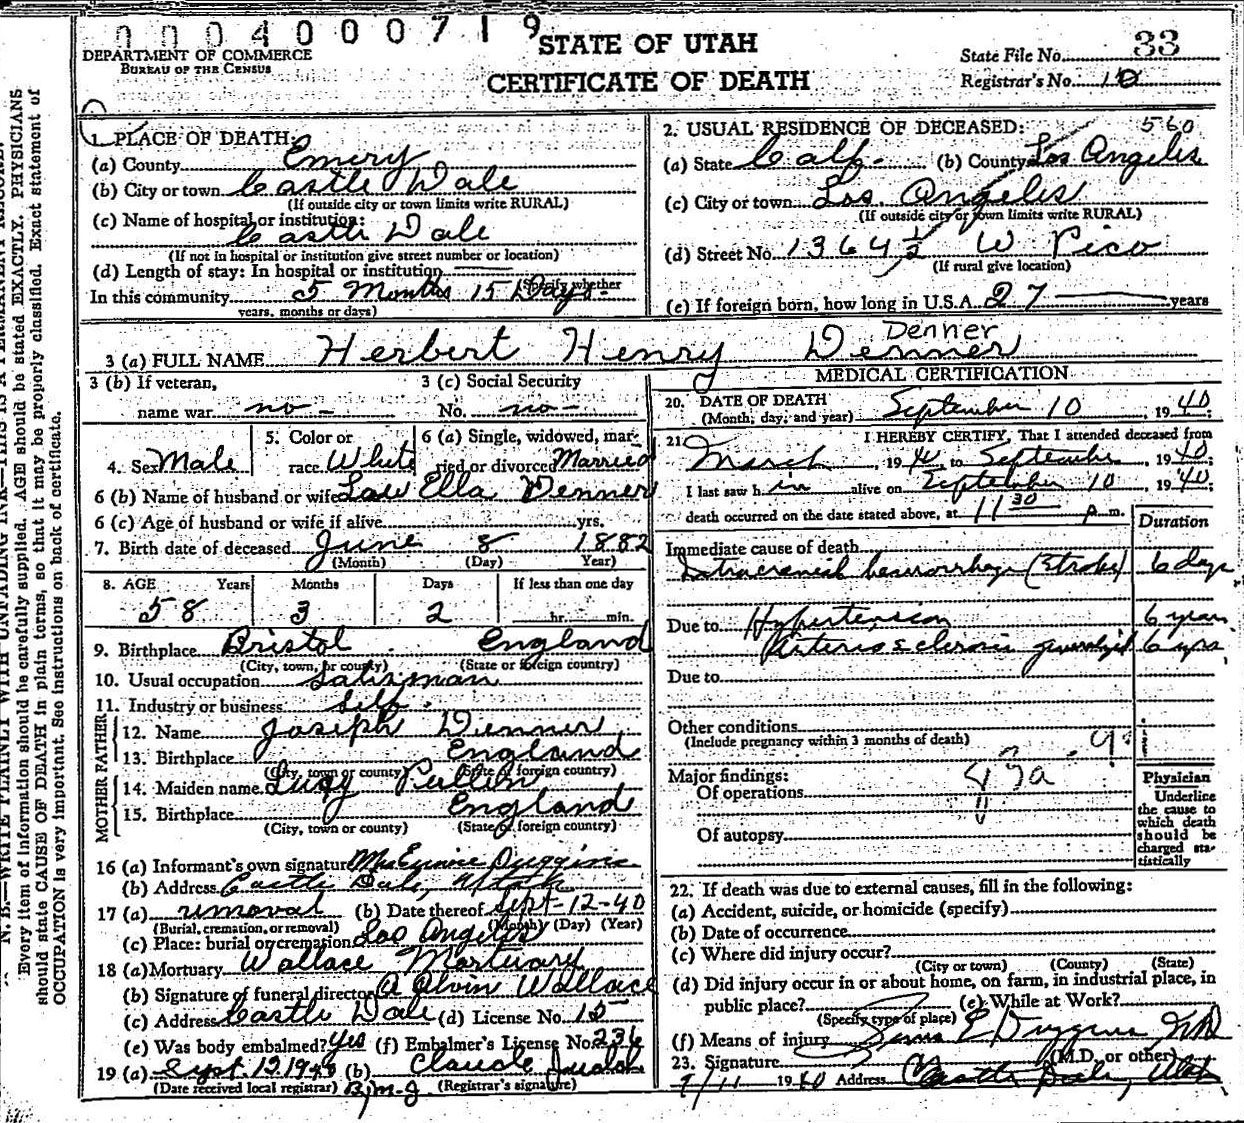 0004000719
STATE OF UTAH
CERTIFICATE OF DEATH
DEPARTMENT OF COMMERCE
BUREAU OF THE CENSUS
State File No. 33
Registrar's No. 10
N. B.—WRITE PLAINLY WITH UNFADING INK—THIS IS A PERMANENT RECORD.
Every item of information should be carefully supplied. AGE should be stated EXACTLY. PHYSICIANS
should state CAUSE OF DEATH in plain terms, so that it may be properly classified. Exact statement of
OCCUPATION is very important. See instructions on back of certificate.
1. PLACE OF DEATH:
(a) County Emery
(b) City or town Castle Dale
(If outside city or town limits write RURAL)
(c) Name of hospital or institution:
Castle Dale
(If not in hospital or institution give street number or location)
(d) Length of stay: In hospital or institution
(Specify whether
In this community 5 Months 15 Days
years, months or days)
2. USUAL RESIDENCE OF DECEASED: 560
(a) State Calf. (b) County Los Angeles
(c) City or town Los Angeles
(If outside city or town limits write RURAL)
(d) Street No. 1364 1/2 W Pico
(If rural give location)
(e) If foreign born, how long in U.S.A. 27 years
Denner
3 (a) FULL NAME Herbert Henry Denner
3 (b) If veteran,
name war no -
3 (c) Social Security
No. no -
4. Sex Male
5. Color or
race White
6 (a) Single, widowed, mar-
ried or divorced Married
6 (b) Name of husband or wife Law Ella Denner
6 (c) Age of husband or wife if alive yrs.
7. Birth date of deceased June 8 1882
(Month) (Day) Year)
8. AGE Years Months Days If less than one day
58 3 2 hr. min.
9. Birthplace Bristol England
(City, town, or county) (State or foreign country)
10. Usual occupation Salesman
11. Industry or business Self.
FATHER
12. Name Joseph Denner
13. Birthplace England
(City, town or county) (State or foreign country)
MOTHER
14. Maiden name Lucy Pullen
15. Birthplace England
(City, town or county) (State or foreign country)
16 (a) Informant's own signature Mrs Duggins
(b) Address Castle Dale, Utah
17 (a) removal (b) Date thereof Sept-12-40
(Burial, cremation, or removal) (Month) (Day) (Year)
(c) Place: burial or cremation Los Angeles
18 (a) Mortuary Wallace Mortuary
(b) Signature of funeral director A Alvin Wallace
(c) Address Castle Dale (d) License No. 15
(e) Was body embalmed? Yes (f) Embalmer's License No. 236
19 (a) Sept. 12 1940 (b) Claude
(Date received local registrar) (Registrar's signature)
MEDICAL CERTIFICATION
20. DATE OF DEATH
(Month, day, and year) September 10, 1940;
21. I HEREBY CERTIFY, That I attended deceased from
March, 1940, to September, 1940;
I last saw h im alive on September 10, 1940;
death occurred on the date stated above, at 11 30 p.m.
Duration
Immediate cause of death
Intracranial hemorrhage (Stroke) 6 days
Due to Hypertension 6 years
Arterio sclerosis generalized 6 yrs,
Due to
Other conditions
(Include pregnancy within 3 months of death)
Major findings:
Of operations
Of autopsy
Physician
Underline
the cause to
which death
should be
charged sta-
tistically
22. If death was due to external causes, fill in the following:
(a) Accident, suicide, or homicide (specify)
(b) Date of occurrence
(c) Where did injury occur?
(City or town) (County) (State)
(d) Did injury occur in or about home, on farm, in industrial place, in
public place? (e) While at Work?
(Specify type of place)
(f) Means of injury
23. Signature Duggins MD
(M.D. or other)
9/11 1940 Address Castle Dale, Utah